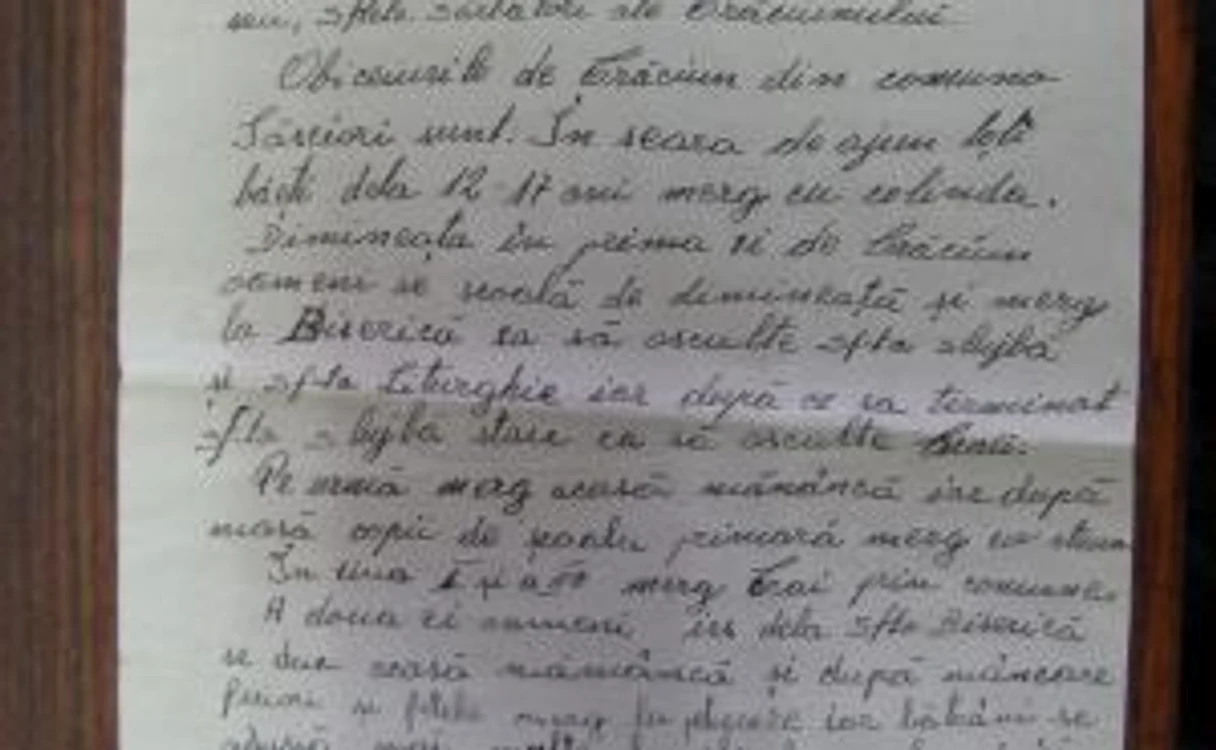 sfte. sărbători ale Crăciunului
Obiceiurile de Crăciun din comuna
Săsciori sunt. În seara de ajun toți
băeți dela 12-17 ani merg cu colinda.
Dimineața în prima zi de Crăciun
oameni se scoală de dimineață și merg
la Biserică ca să asculte sfta slujbă
și sfta Liturghie iar după ce sa terminat
sfta slujba stare ca să asculte
Pe urmă merg acasă mănâncă iar după
masă copii de școala primară merg cu steaua
În ziua I și a merg Crai prin comună
A doua zi oameni ies dela Sfta Biserică
se duc acasă mănâncă și după mâncare
feciori și fetele merg la plimbare iar bătrâni se
adună mai mulți